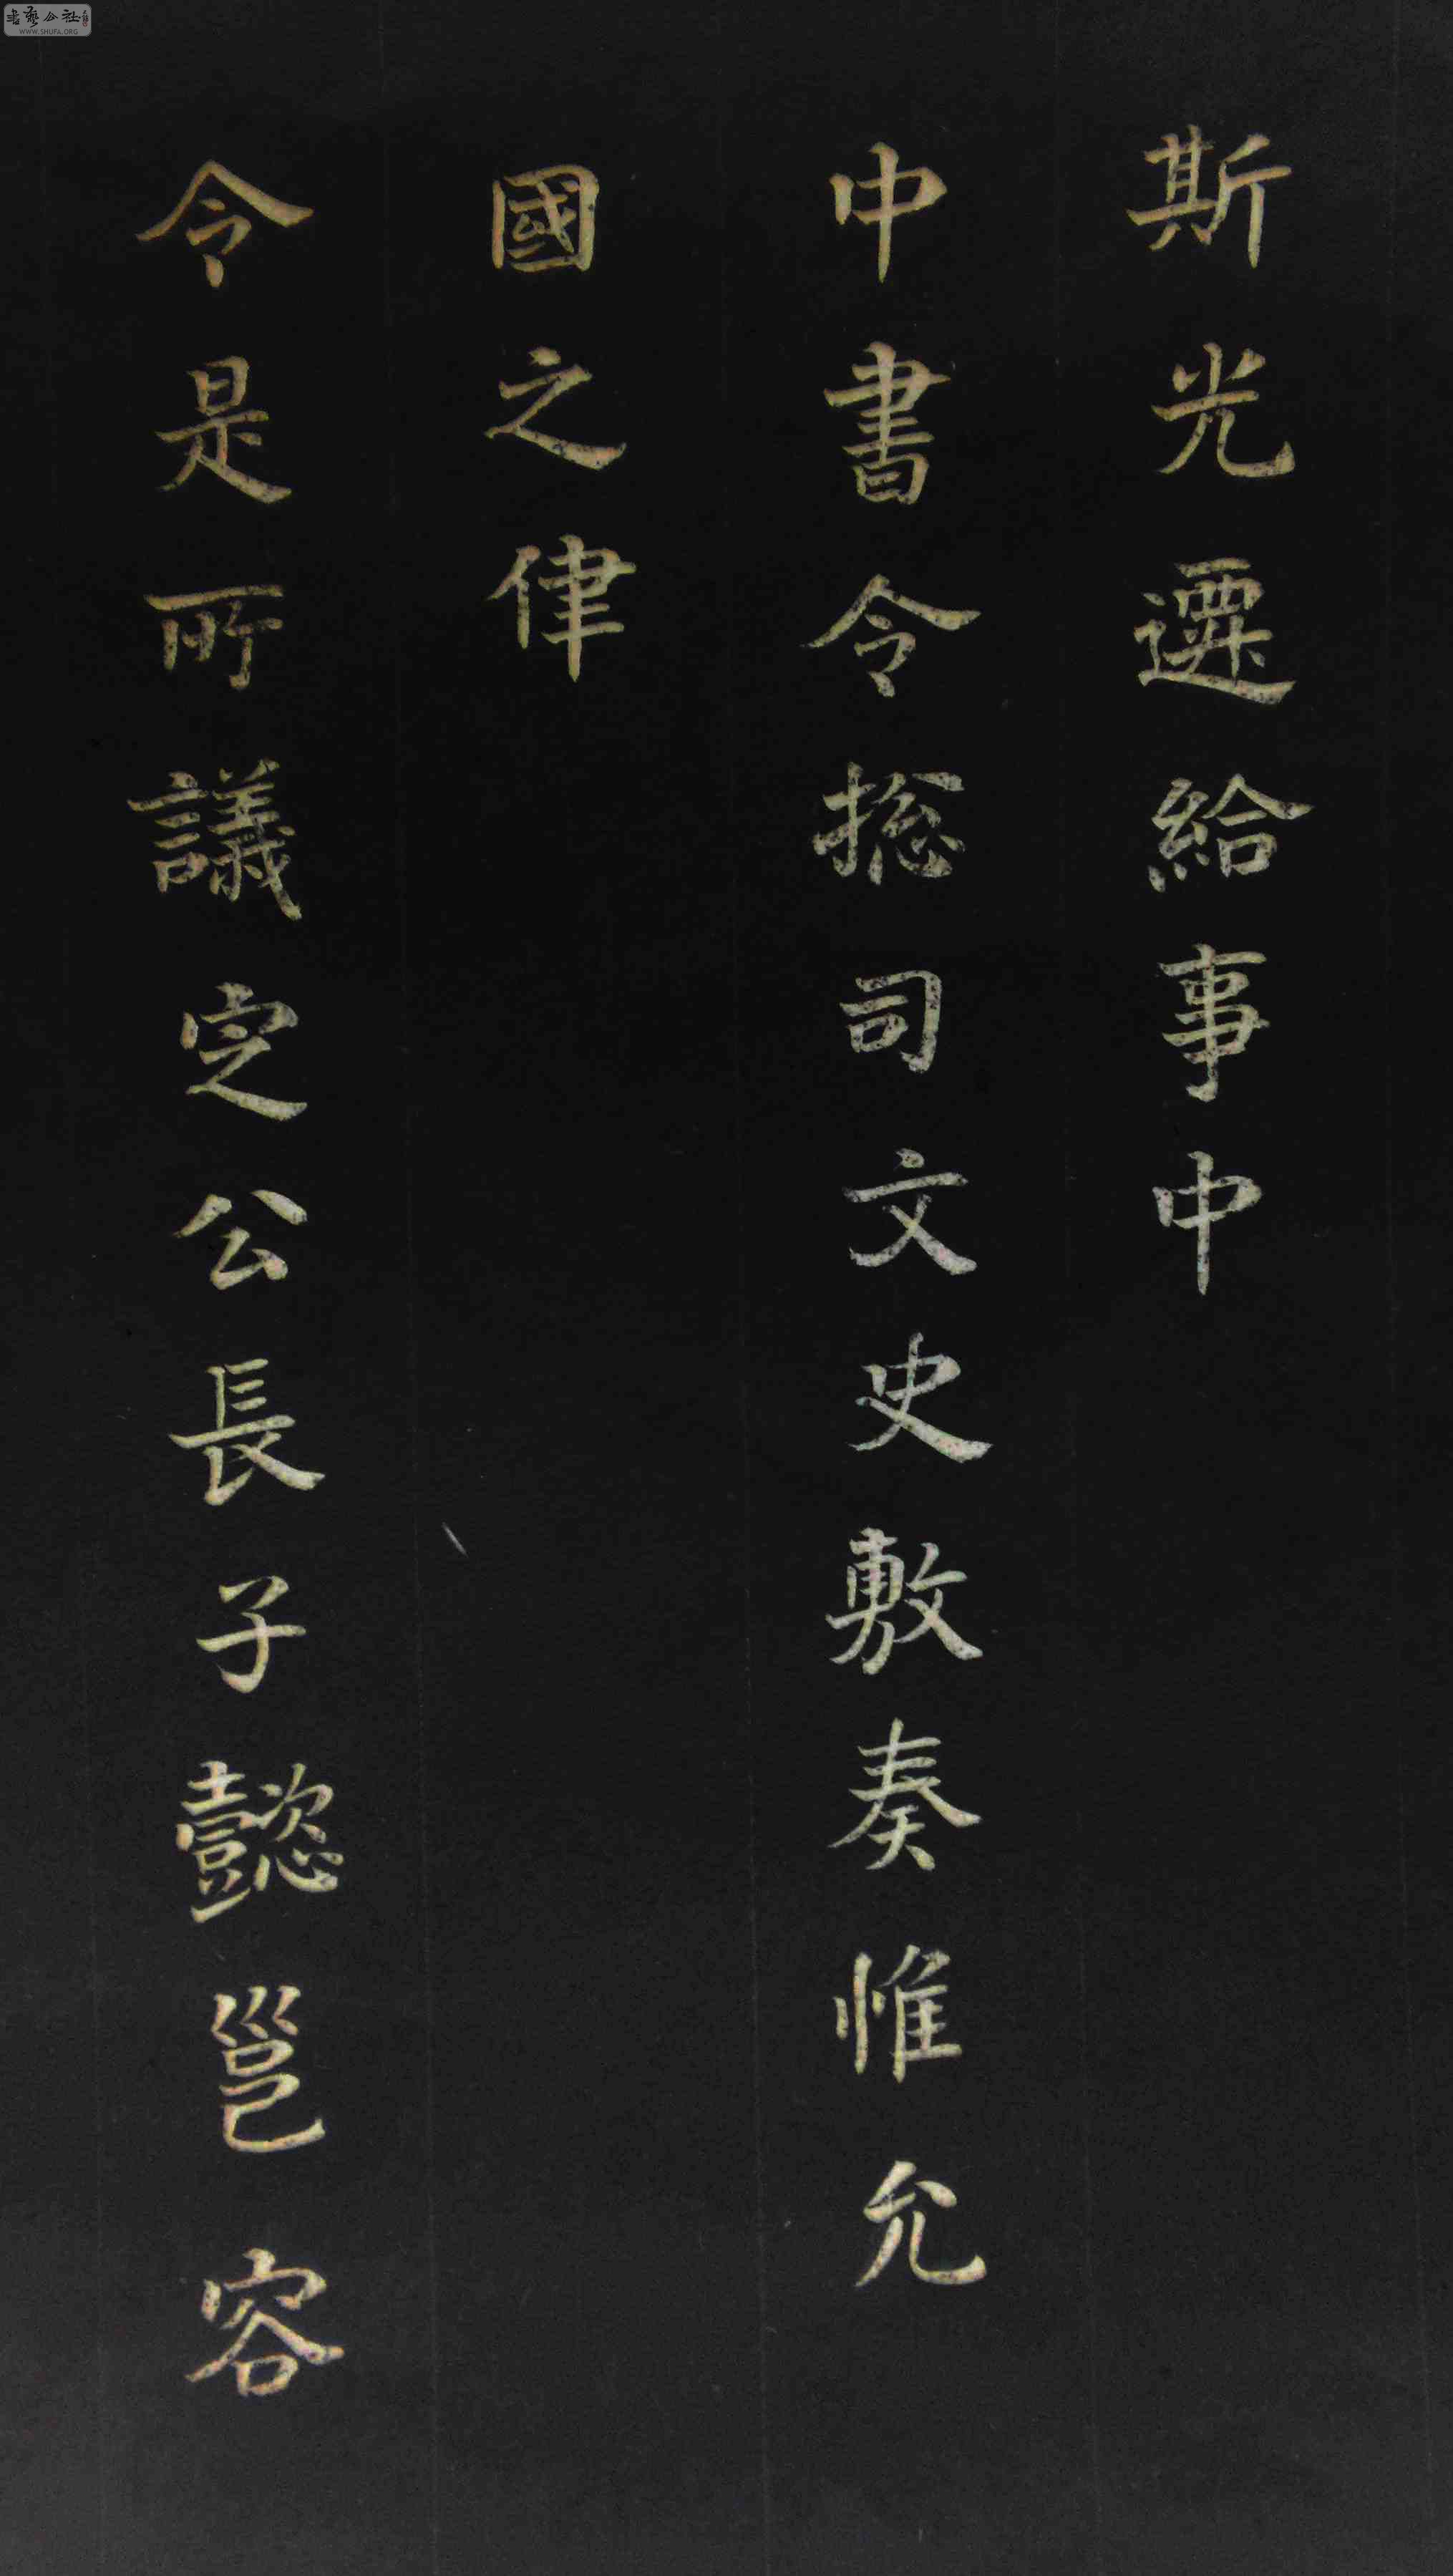 斯光遷給事中
中書令揔司文史敷奏惟允
國之律
令是所議定公長子懿邕容
書藝公社
WWW.SHUFA.ORG